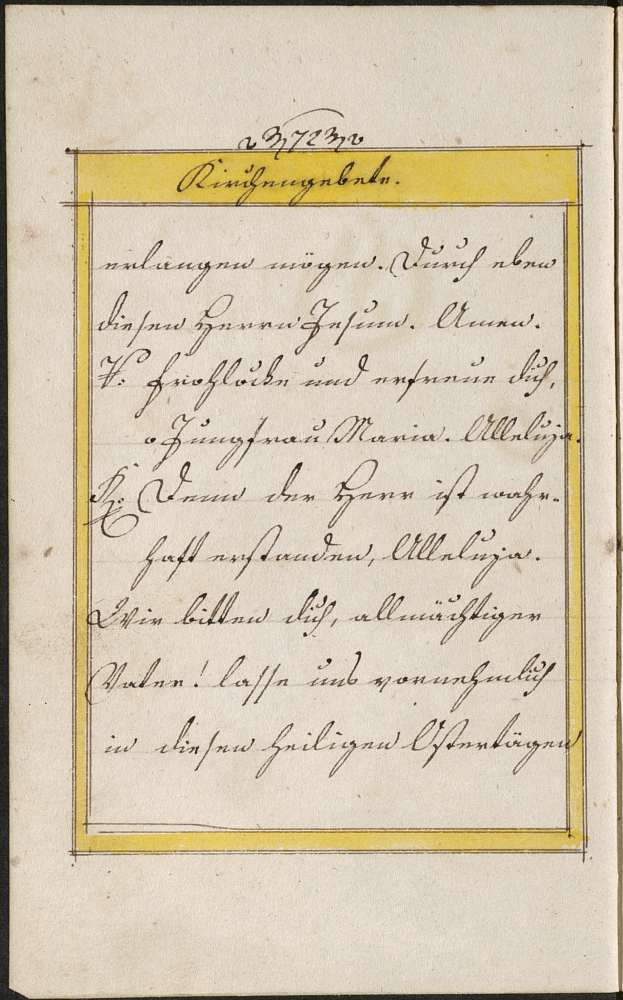 72
Kirchengebete.
erlangen mögen. Durch eben
diesen Herrn Jesum. Amen.
V. Frohlocke und erfreue dich,
o Jungfrau Maria. Alleluja.
R. Denn der Herr ist wahr-
haft erstanden, Alleluja.
Wir bitten dich, allmächtiger
Vater! lasse uns vornehmlich
in diesen heiligen Ostertägen